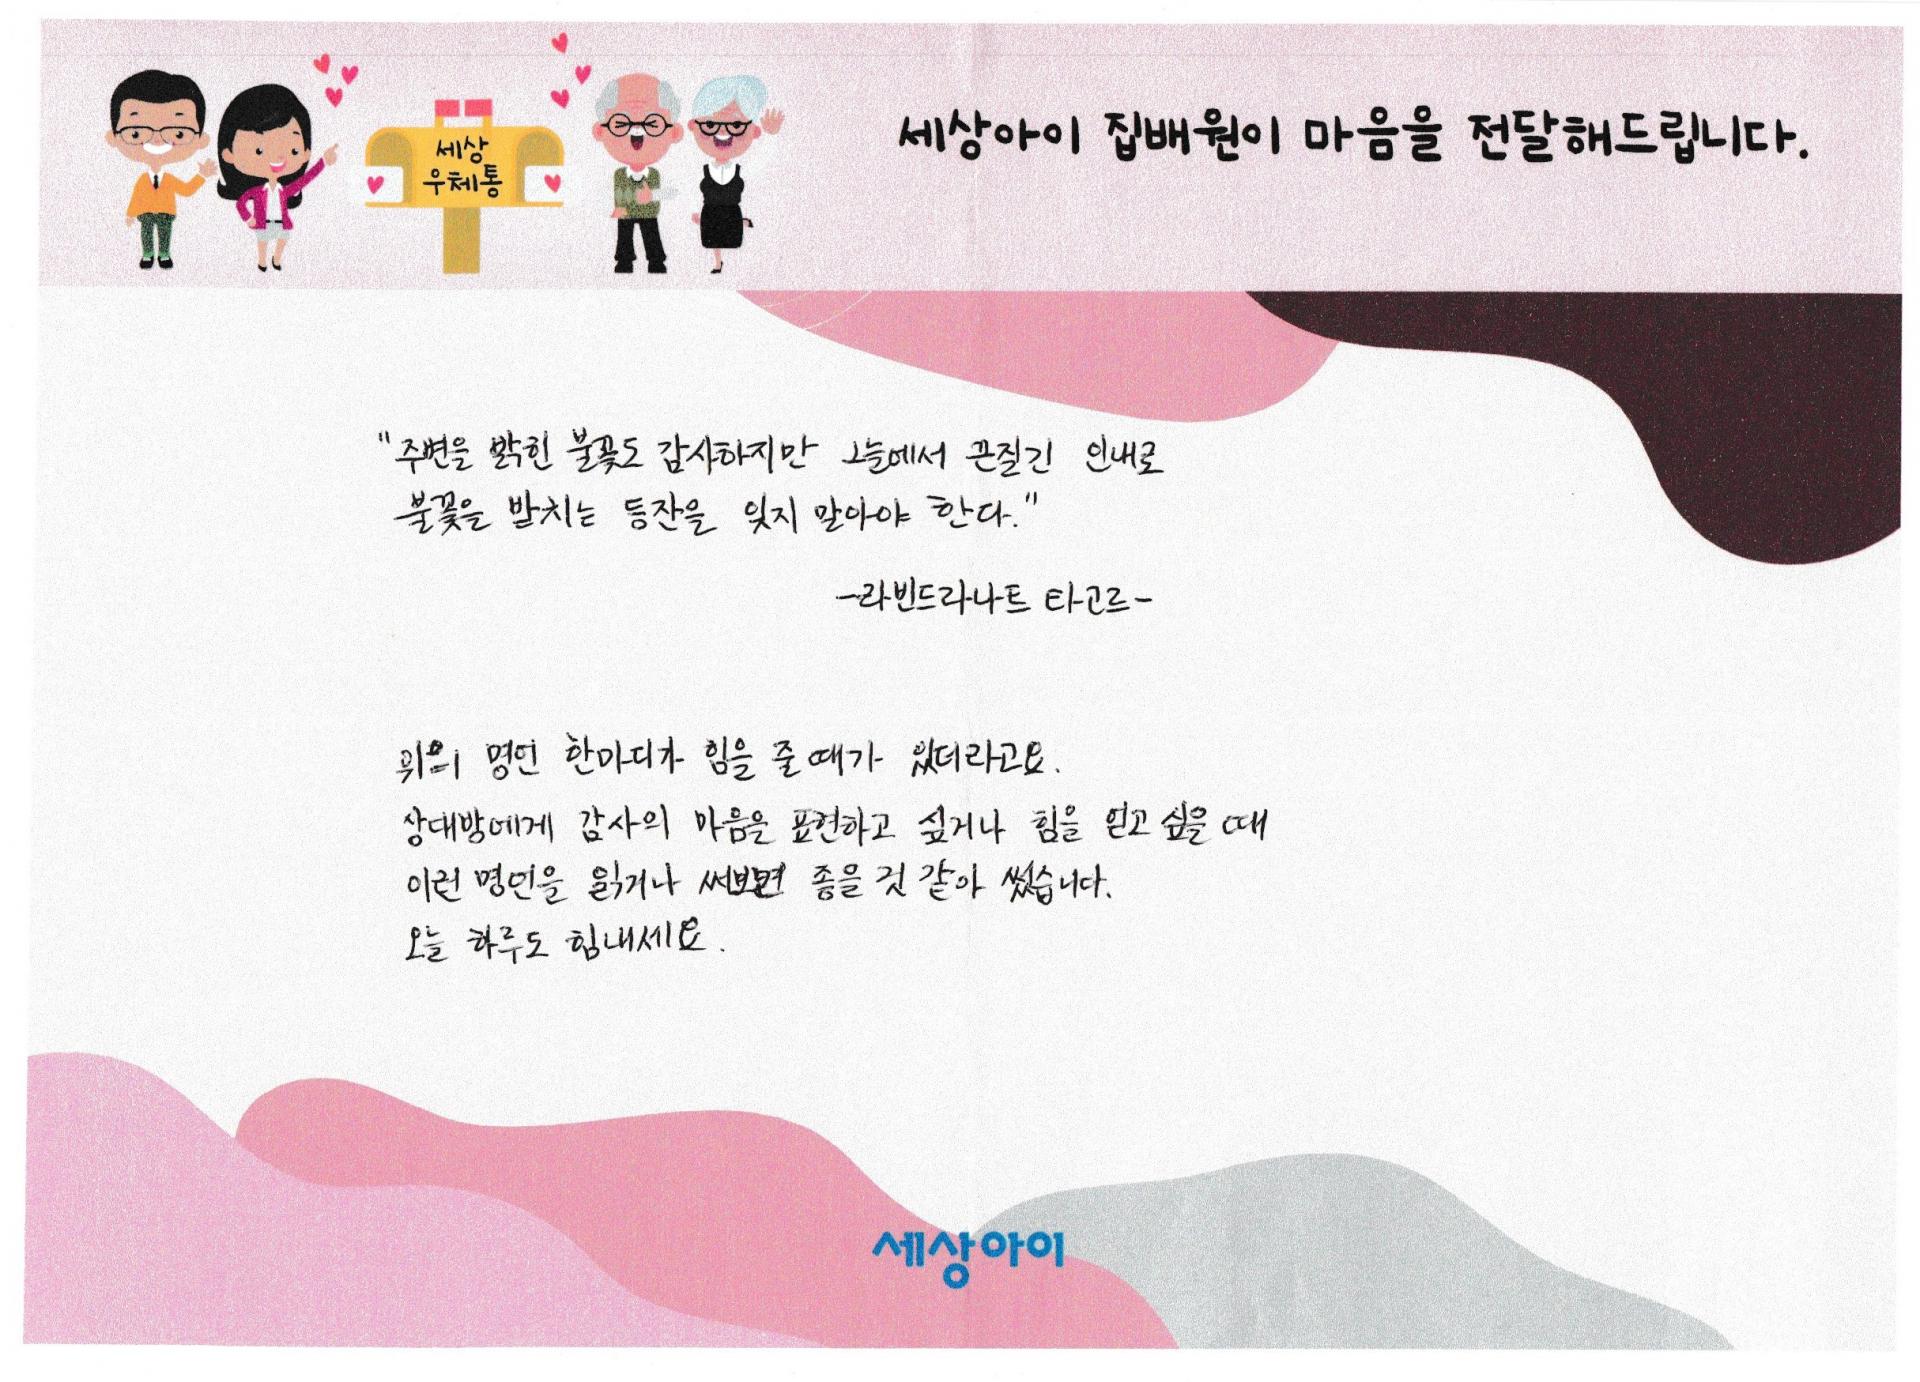 세상아이 집배원이 마음을 전달해드립니다.
세상
우체통
"주변을 밝힌 불꽃도 감사하지만 그늘에서 끈질긴 인내로
불꽃을 받치는 등잔을 잊지 말아야 한다."
-라빈드라나트 타고르-
위의 명언 한마디가 힘을 줄 때가 있더라고요.
상대방에게 감사의 마음을 표현하고 싶거나 힘을 얻고 싶을 때
이런 명언을 읽거나 써보면 좋을 것 같아 썼습니다.
오늘 하루도 힘내세요.
세상아이